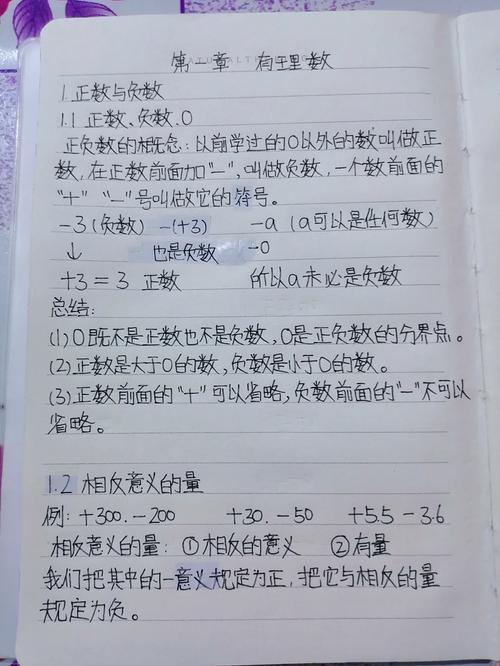 第一章 有理数
1.正数与负数
1.1 正数、负数、0
正负数的概念:以前学过的0以外的数叫做正
数,在正数前面加"—",叫做负数,一个数前面的
"+" "—"号叫做它的符号。
-3(负数) -(+3) -a (a可以是任何数)
↓ 也是负数 -0
+3=3 正数 所以a未必是负数
总结:
(1)0既不是正数也不是负数,0是正负数的分界点。
(2)正数是大于0的数,负数是小于0的数。
(3)正数前面的"+"可以省略,负数前面的"—"不可以
省略。
1.2 相反意义的量
例:+300.-200 +30.-50 +5.5-3.6
相反意义的量:①相反的意义 ②有量
我们把其中的一意义规定为正,把它与相反的量
规定为负。